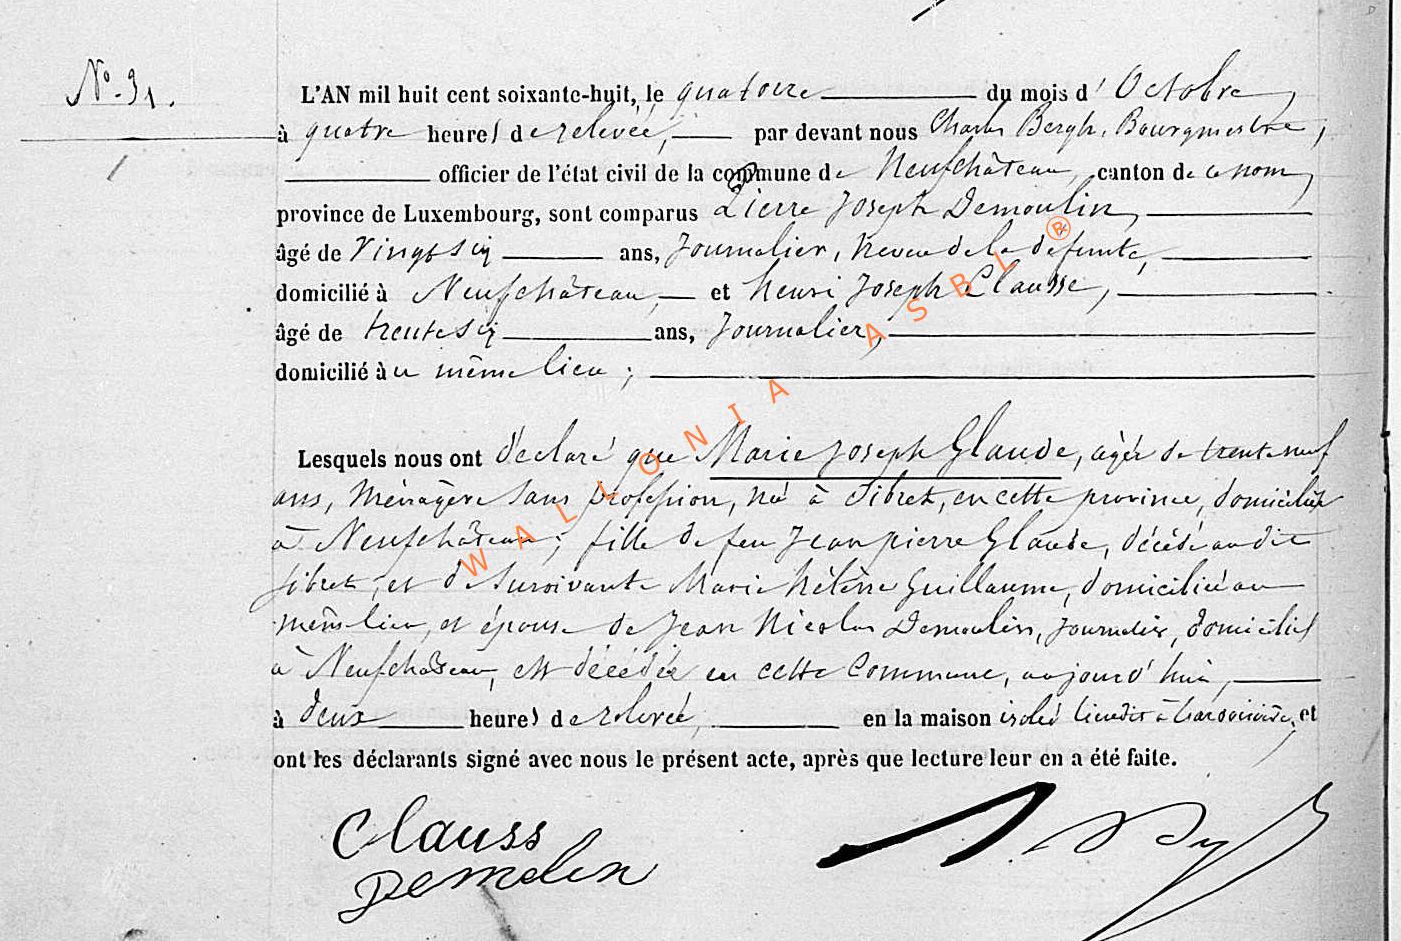 N° 31.
L'AN mil huit cent soixante-huit, le quatorze du mois d'Octobre,
à quatre heures de relevée, par devant nous Charles Bergh, Bourgmestre,
officier de l'état civil de la commune de Neufchâteau, canton de ce nom,
province de Luxembourg, sont comparus Pierre Joseph Demoulin,
âgé de vingt six ans, Journalier, neveu de la défunte,
domicilié à Neufchâteau, et henri Joseph Clausse,
âgé de trente six ans, Journalier,
domicilié au même lieu ;
Lesquels nous ont déclaré que Marie Joseph Glaude, agée de trente neuf
ans, Ménagère sans profession, née à Sibret, en cette province, domiciliée
à Neufchâteau ; fille de feu Jean pierre Glaude, décédé au dit
Sibret, et de survivante Marie hélène Guillaume, domiciliée au
même lieu, et épouse de Jean Nicolas Demoulin, Journalier, domicilié
à Neufchâteau, est décédée en cette Commune, aujourd'hui,
à deux heures de relevée, en la maison isolée lieudit à et
ont les déclarants signé avec nous le présent acte, après que lecture leur en a été faite.
Clauss
Demolin
WALLONIA ASBL ®